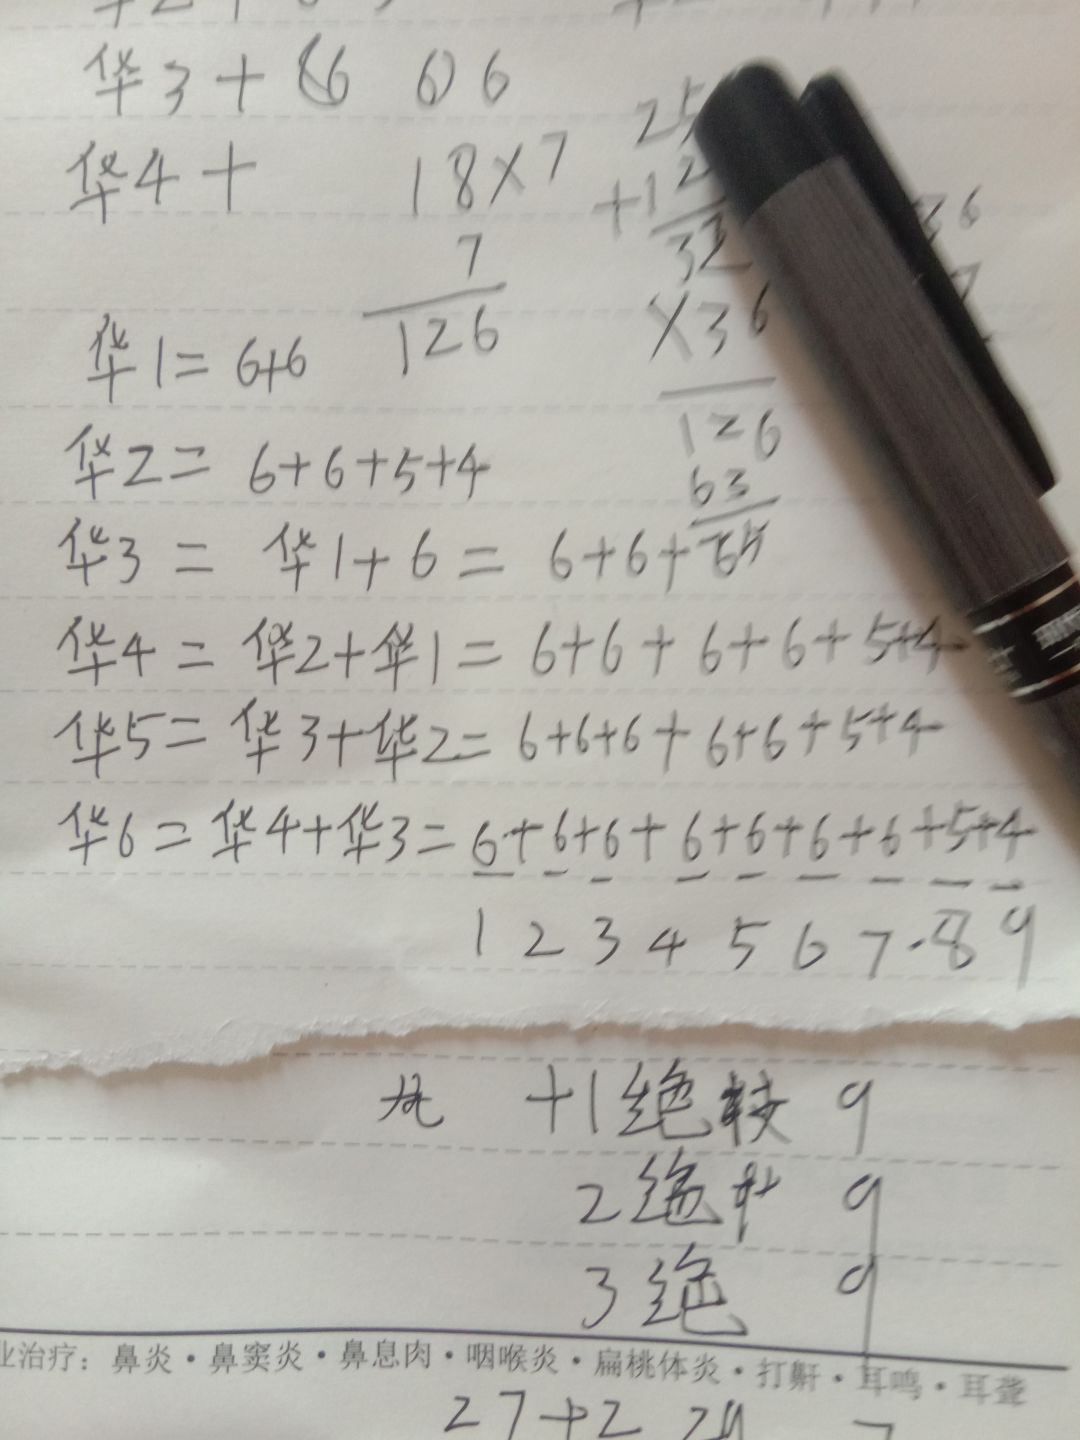 华3+86 606
华4+ 18×7
25
+12
7
32
126
×36
36
华1=6+6
126
华2=6+6+5+4
63
华3=华1+6=6+6+
华4=华2+华1=6+6+6+6+5+4
华5=华3+华2=6+6+6+6+6+5+4
华6=华4+华3=6+6+6+6+6+6+6+5+4
1 2 3 4 5 6 7·8 9
+1绝 9
2绝 9
3绝 9
业治疗：鼻炎·鼻窦炎·鼻息肉·咽喉炎·扁桃体炎·打鼾·耳鸣·耳聋
27+2